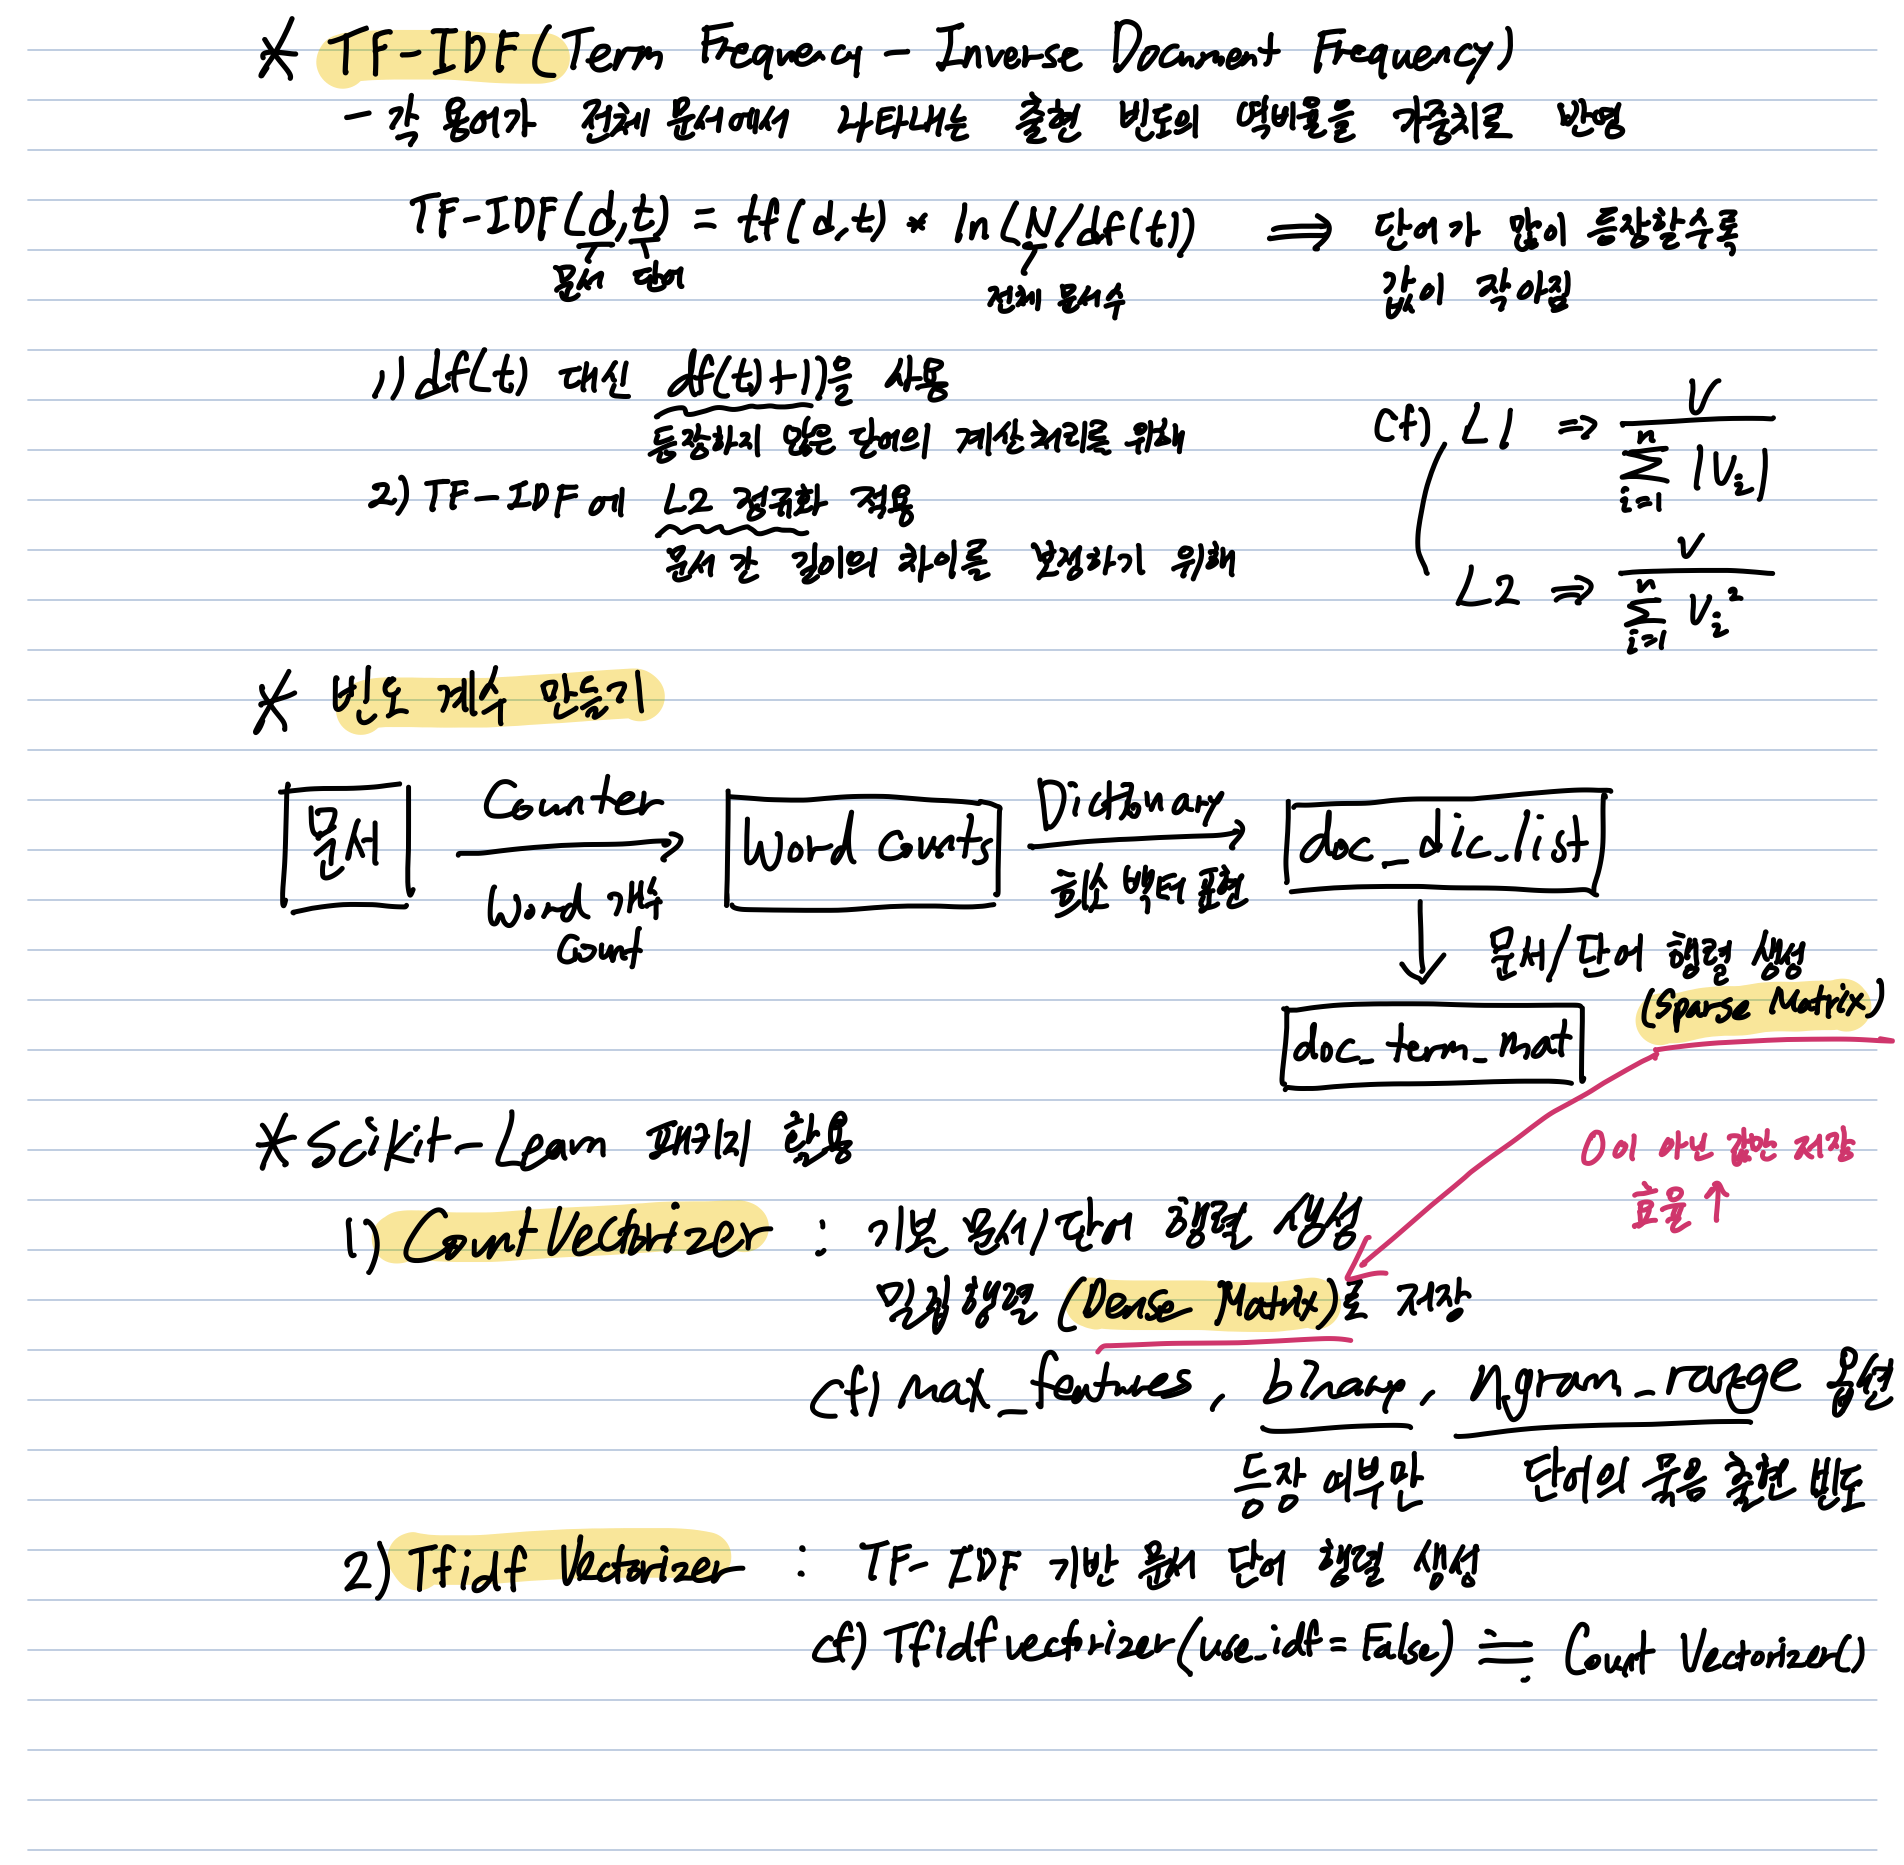 * TF-IDF (Term Frequency - Inverse Document Frequency)
- 각 용어가 전체 문서에서 나타내는 출현 빈도의 역비율을 가중치로 반영
TF-IDF(d,t) = tf(d,t) * ln(N/df(t)) ⇒ 단어가 많이 등장할수록
문서 단어 전체 문서수 값이 작아짐
1) df(t) 대신 df(t)+1)을 사용
등장하지 않은 단어의 계산처리를 위해
2) TF-IDF에 L2 정규화 적용
문서 간 길이의 차이를 보정하기 위해
cf) L1 ⇒ V / Σ_{i=1}^{n} |V_i|
L2 ⇒ V / Σ_{i=1}^{n} V_i²
* 빈도 계수 만들기
문서 → Word Counts → doc_dic_list
Counter
Word 개수
Count
Dictionary
희소 벡터 표현
↓ 문서/단어 행렬 생성
(Sparse Matrix)
doc_term_mat
0이 아닌 값만 저장
효율 ↑
* Scikit-Learn 패키지 활용
1) CountVectorizer : 기본 문서/단어 행렬 생성
밀집행렬 (Dense Matrix)로 저장
cf) max_features, binary, ngram_range 옵션
등장 여부만 단어의 묶음 출현 빈도
2) Tfidf Vectorizer : TF-IDF 기반 문서 단어 행렬 생성
cf) Tfidfvectorizer(use_idf=False) ≒ Count Vectorizer()